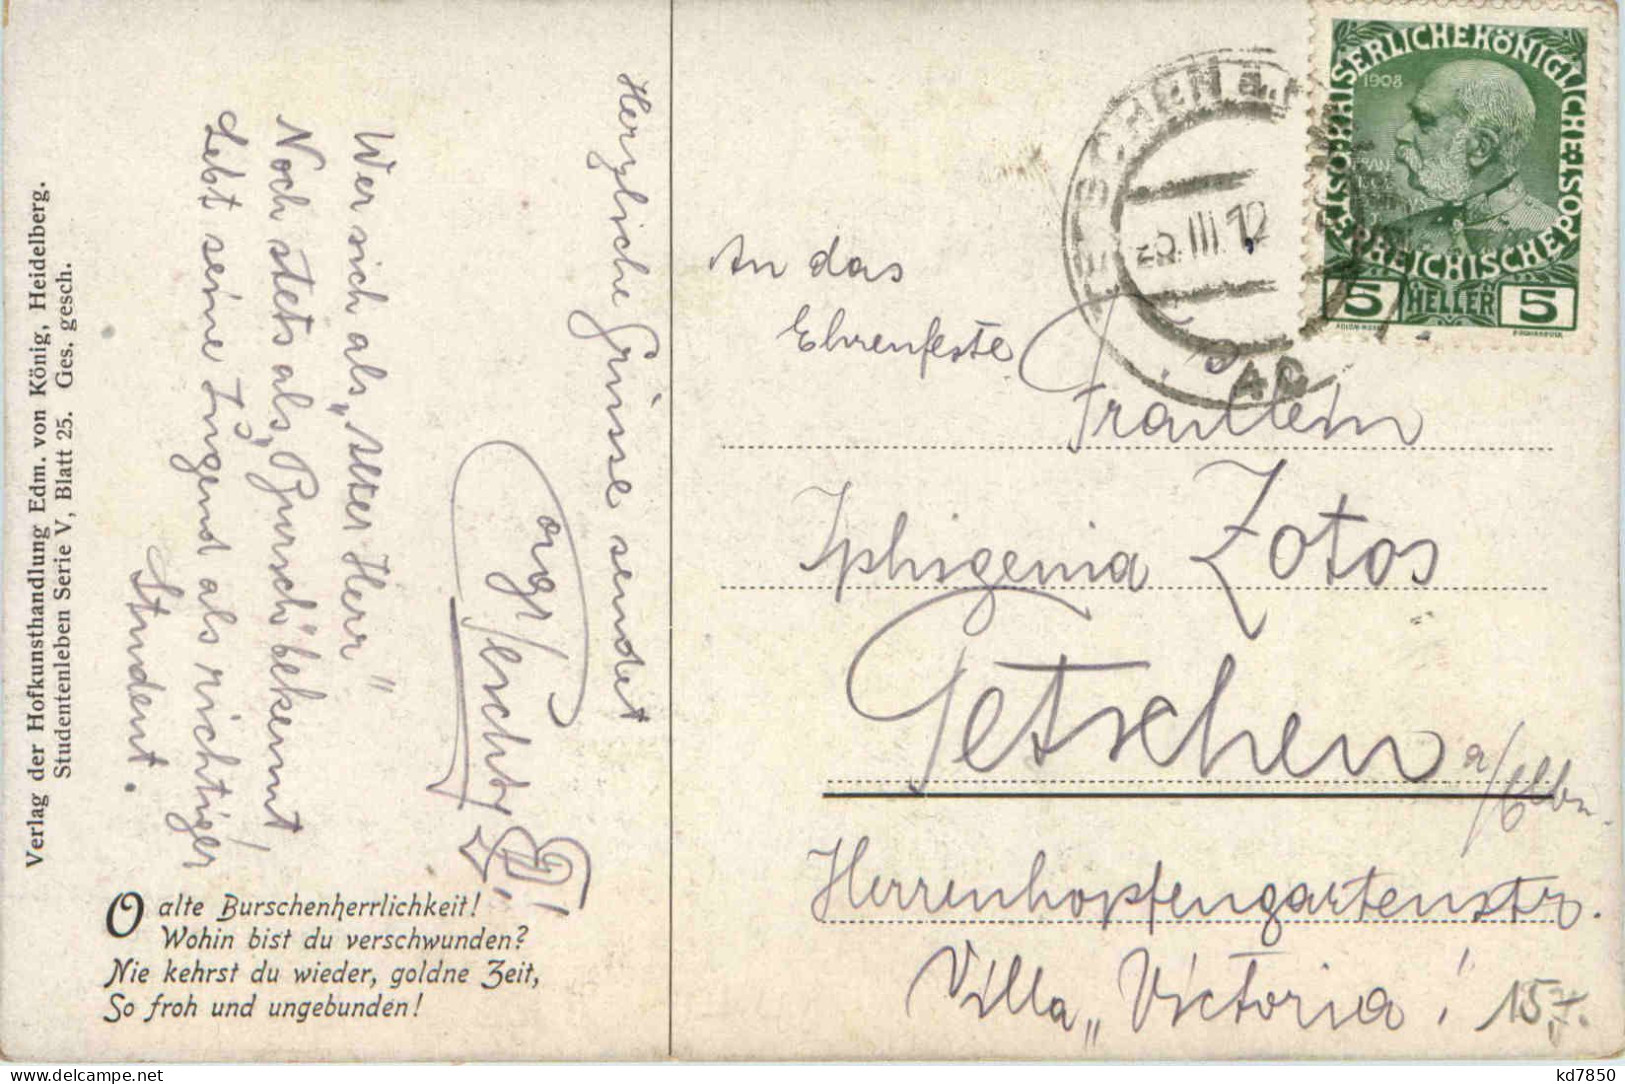 Verlag der Hofkunsthandlung Edm. von König, Heidelberg.
Studentenleben Serie V, Blatt 25. Ges. gesch.
Herzliche Grüsse sendet
Wer sich als „Alter Herr"
Noch stets als „Bursch" bekennt,
Lebt seine Jugend als richtiger
Student.
O alte Burschenherrlichkeit!
Wohin bist du verschwunden?
Nie kehrst du wieder, goldne Zeit,
So froh und ungebunden!
KAISERLICHE KÖNIGLICHE
ÖSTERREICHISCHE POST
1908
5 HELLER 5
III 12
An das
Ehrenfeste
Fräulein
Iphigenia Zotos
Tetschen a/Elbe.
Herrenhopfengartenstr.
Villa „Victoria!
15,-
kd7850